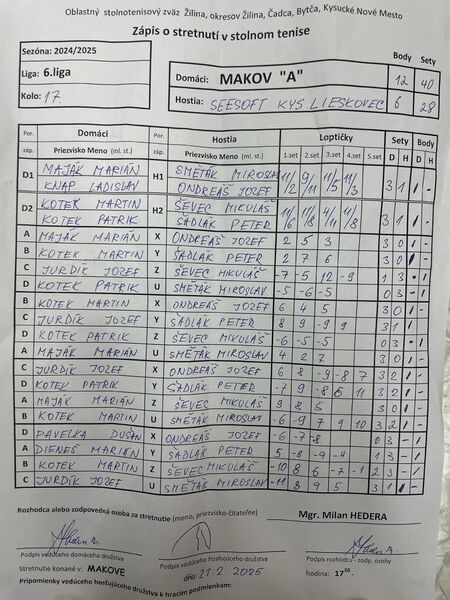 Oblastný stolnotenisový zväz Žilina, okresov Žilina, Čadca, Bytča, Kysucké Nové Mesto
Zápis o stretnutí v stolnom tenise
Sezóna: 2024/2025
Liga: 6.liga
Kolo: 17.
Body Sety
Domáci: MAKOV "A" 12 40
Hostia: SEESOFT KYS. LIESKOVEC 6 28
Por. Domáci Por. Hostia Loptičky Sety Body
záp. Priezvisko Meno (ml. st.) záp. Priezvisko Meno (ml. st.) 1.set 2.set 3.set 4.set 5.set D H D H
D1 MAJÁK MARIÁN H1 SMĚTÁK MIROSLAV 11/2 9/11 11/5 11/3 3 1 1 -
KNAP LADISLAV ONDREÁŠ JOZEF
D2 KOTEK MARTIN H2 ŠEVEC MIKULÁŠ 11/6 11/8 4/11 11/8 3 1 1 -
KOTEK PATRIK SÁDLÁK PETER
A MAJÁK MARIÁN X ONDREÁŠ JOZEF 2 5 3 3 0 1 -
B KOTEK MARTIN Y SÁDLÁK PETER 2 7 6 3 0 1 -
C JURDÍK JOZEF Z ŠEVEC MIKULÁŠ -7 -5 12 -9 1 3 - 1
D KOTEK PATRIK U SMĚTÁK MIROSLAV -5 -6 -5 0 3 - 1
B KOTEK MARTIN X ONDREÁŠ JOZEF 6 4 5 3 0 1 -
C JURDÍK JOZEF Y SÁDLÁK PETER 8 9 -9 9 3 1 1
D KOTEK PATRIK Z ŠEVEC MIKULÁŠ -6 -5 -5 0 3 - 1
A MAJÁK MARIÁN U SMĚTÁK MIROSLAV 4 2 7 3 0 1 -
C JURDÍK JOZEF X ONDREÁŠ JOZEF 6 8 -9 -8 7 3 2 1 -
D KOTEK PATRIK Y SÁDLÁK PETER -7 9 -8 6 11 3 2 1 -
A MAJÁK MARIÁN Z ŠEVEC MIKULÁŠ 9 8 5 3 0 1 -
B KOTEK MARTIN U SMĚTÁK MIROSLAV -6 -9 7 9 10 3 2 1 -
D PAVELKA DUŠAN X ONDREÁŠ JOZEF -6 -7 -8 0 3 - 1
A DIENEŠ MARIÁN Y SÁDLÁK PETER 5 -8 -9 -4 1 3 - 1
B KOTEK MARTIN Z ŠEVEC MIKULÁŠ -10 8 6 -7 -1 2 3 - 1
C JURDÍK JOZEF U SMĚTÁK MIROSLAV -11 8 9 5 3 1 1 -
Rozhodca alebo zodpovedná osoba za stretnutie (meno, priezvisko-čitateľne) Mgr. Milan HEDERA
Podpis vedúceho domáceho družstva Podpis vedúceho hosťujúceho družstva Podpis rozhodcu - zodp. osoby
Stretnutie konané v: MAKOVE dňa: 21.2.2025 hodina: 17 30
Pripomienky vedúceho hosťujúceho družstva k hracím podmienkam: